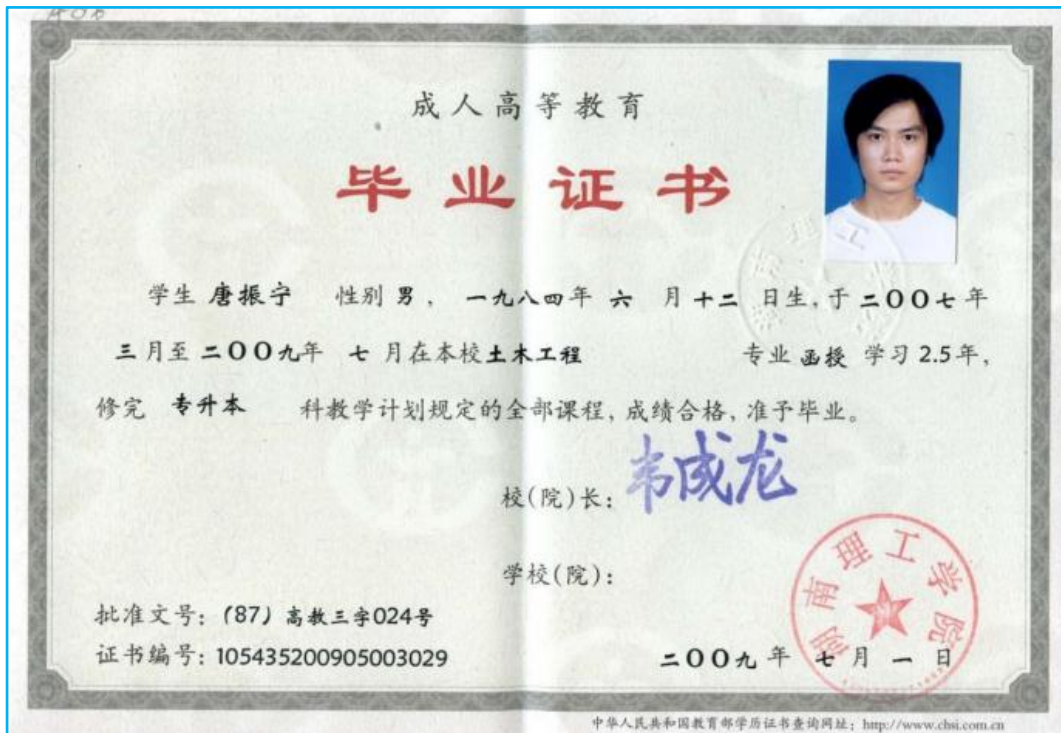 成人高等教育
毕业证书
学生 唐振宁 性别 男， 一九八四年 六 月 十二 日生，于 二〇〇七年
三月至 二〇〇九年 七 月在本校土木工程 专业 函授 学习 2.5 年，
修完 专升本 科教学计划规定的全部课程，成绩合格，准予毕业。
校(院)长： 韦成龙
学校(院)：
湖南理工学院
批准文号：(87) 高教三字024号
证书编号：105435200905003029
二〇〇九 年 七 月 一 日
中华人民共和国教育部学历证书查询网址：http://www.chsi.com.cn